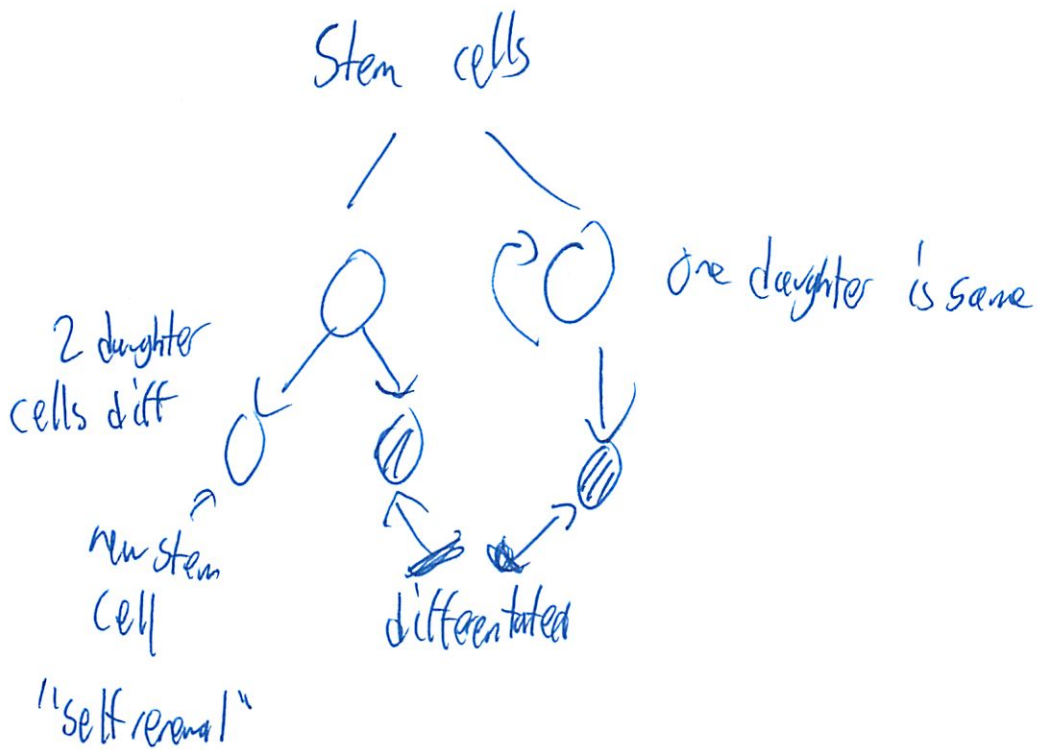 Stem cells
one daughter is same
2 daughter
cells diff
new stem
cell
"self renewal"
differentated